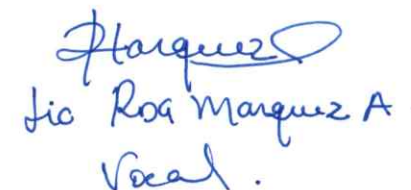 RMarquez
Lic Rosa Marquez A
Vocal.